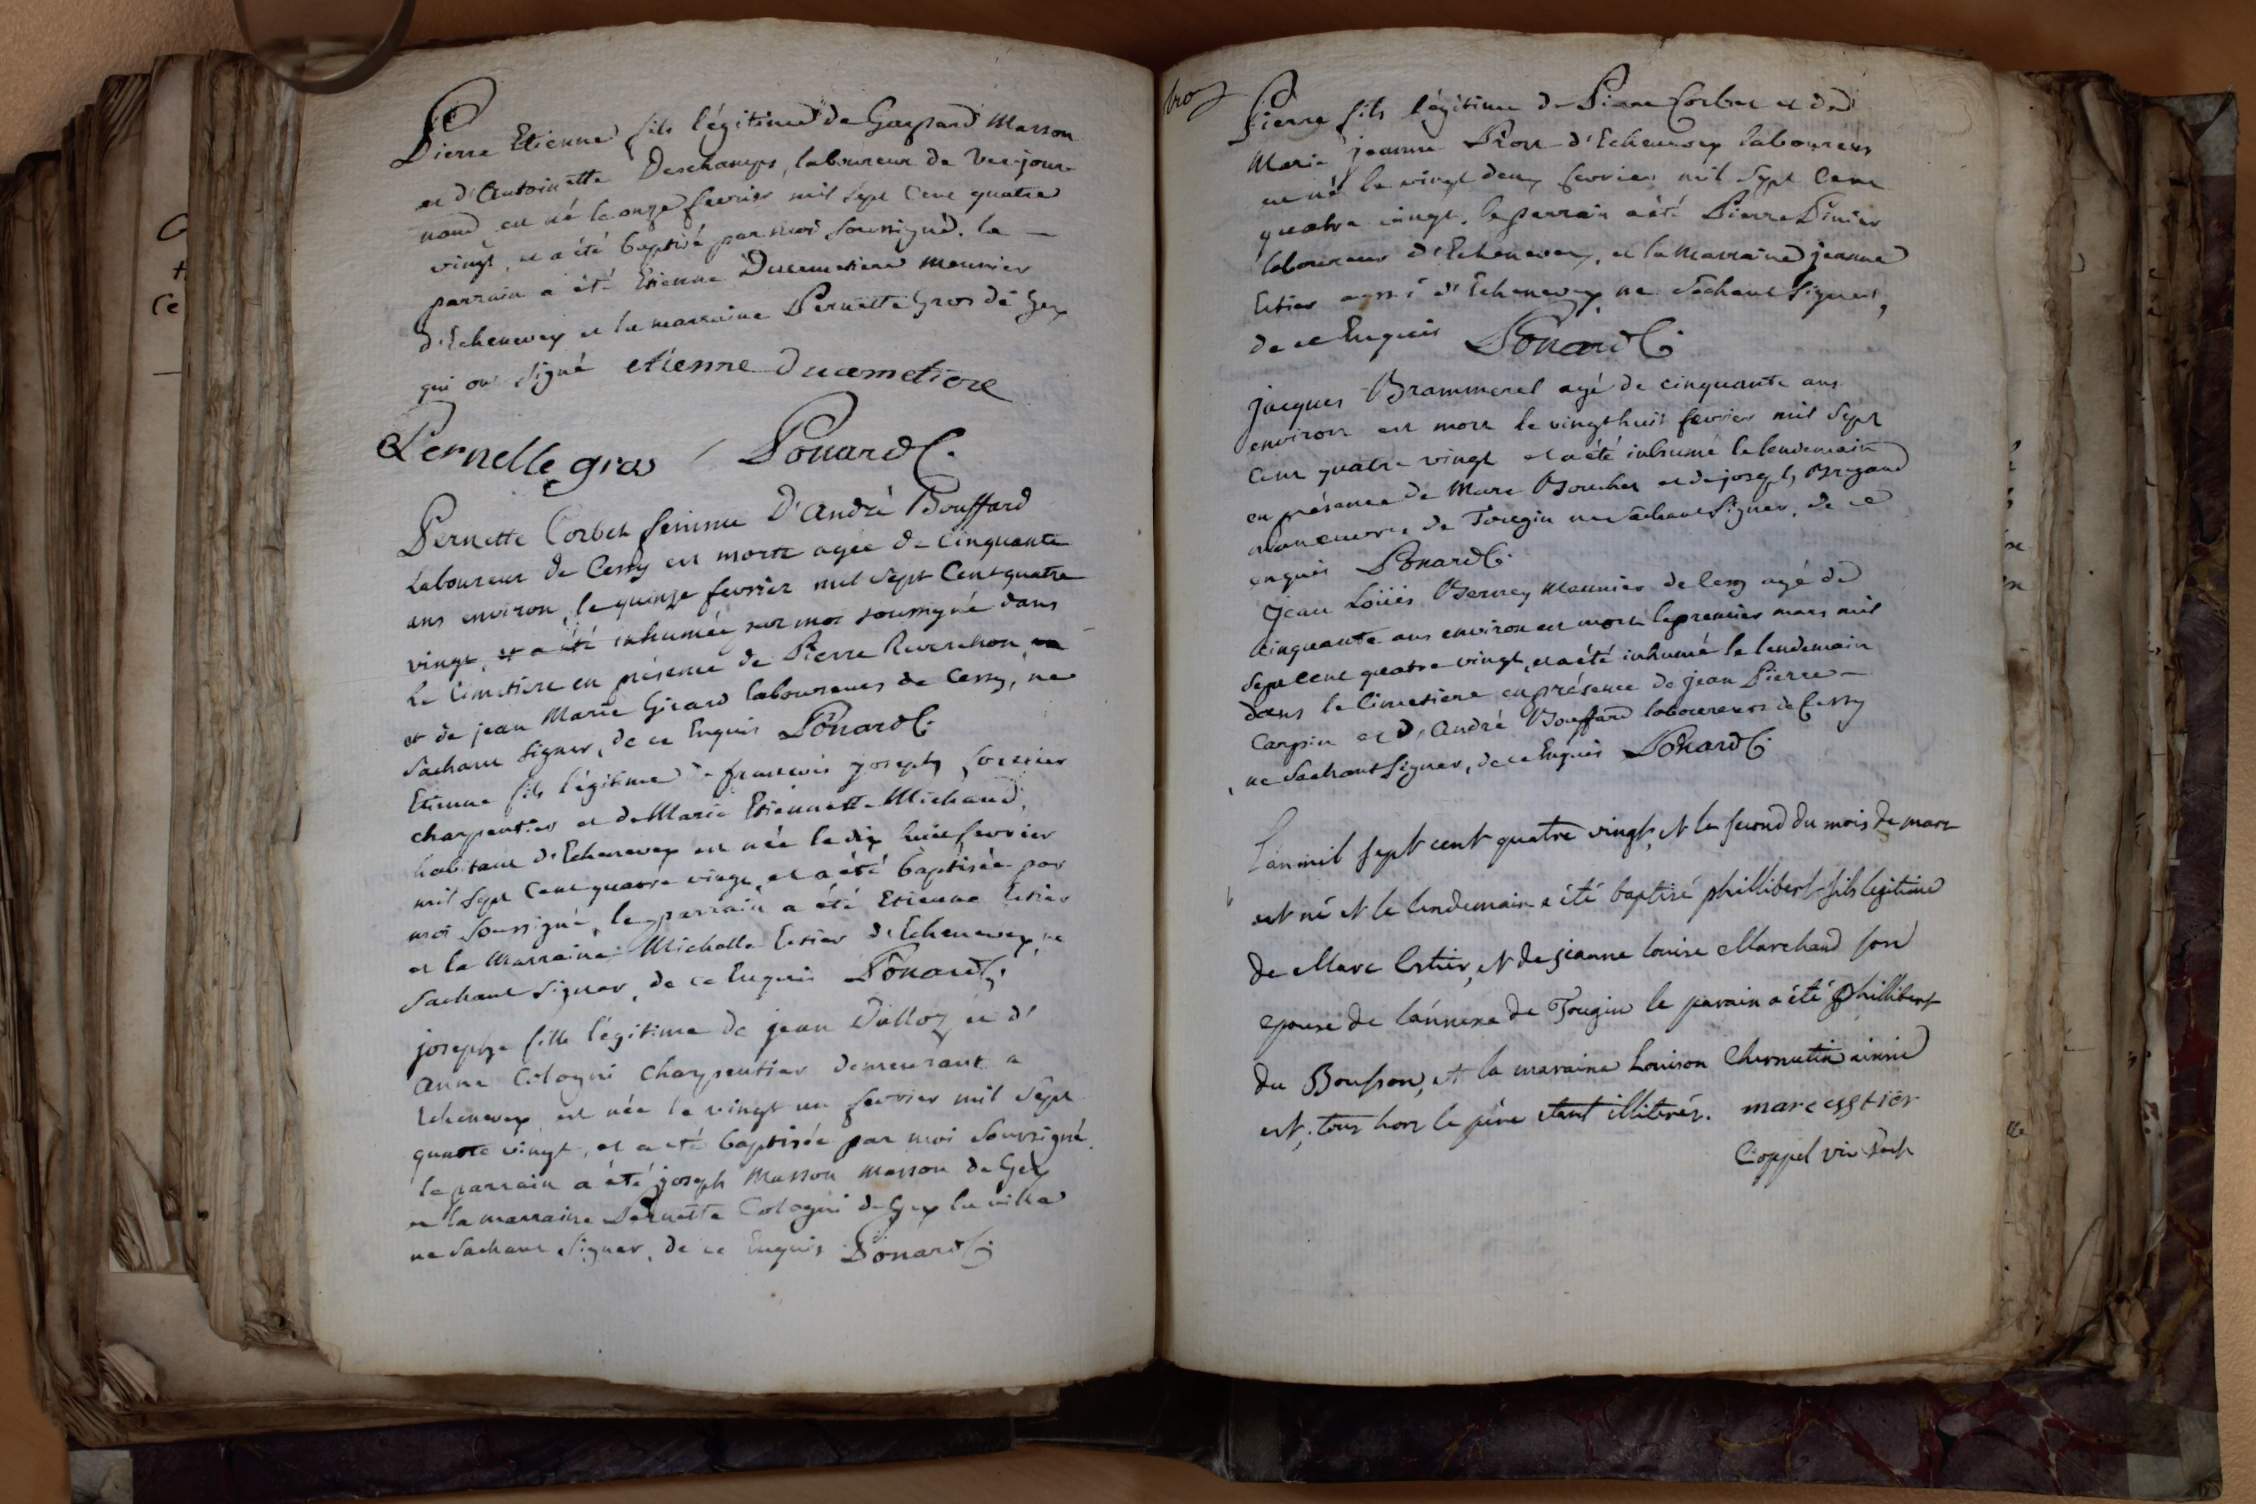 Pierre Etienne fils légitime de Gaspard Masson
et d'Antoinette Deschamps, laboureur de Vee-jour-
nond est né le onze fevrier mil sept Cent quatre
vingt, et a été baptisé par moi soussigné. le —
parrain a été Etienne Ducemetiere meunier
d'Echenevex et la marraine Pernette Gros de Gex
qui ont signé etienne Ducemetiere
Pernette gros Ponard C.
Pernette Corbet femme D'André Bouffard
Laboureur de Cessy est morte agée de Cinquante
ans environ, le quinze fevrier mil sept Cent quatre
vingt, et a été inhumée par moi soussigné dans
le Cimetiere en présence de Pierre Reverchon
et de jean Marie Girard laboureurs de Cessy, ne
sachant signer, de ce Enquis Ponard C.
Etienne fils légitime de francois joseph
charpentier et de Marie Etiennette Michaud,
habitant d'Echenevex est née le dix huit fevrier
mil sept Cent quatre vingt, et a été baptisée par
moi soussigné, le parrain a été Etienne Estier
et la Marraine Michelle Estier d'Echenevex, ne
sachant signer, de ce Enquis Ponard C.
josephe fille légitime de jean Dalloz et d'
Anne Cologni Charpentier demeurant a
Echenevex est née le vingt un fevrier mil sept
quatre vingt, et a été baptisée par moi soussigné.
le parrain a été joseph Masson masson de Gex
et la marraine Pernette Cologni de Gex la ville
ne sachant signer, de ce Enquis Ponard C.
Pierre fils légitime de Pierre Corbet et de
Marie jeanne d'Echenevex laboureurs
est né le vingt deux fevrier mil sept Cent
quatre vingt. le parrain a été Pierre Pinier
laboureur d'Echenevex, et la Marraine jeanne
Estier aussi d'Echenevex ne sachant signer,
de ce Enquis Ponard C.
jacques Brammerel agé de cinquante ans
environ est mort le vingt huit fevrier mil sept
Cent quatre vingt et a été inhumé le lendemain
en présence de Marc Boucher et de joseph
manoeuvres de Tougin ne sachant signer, de ce
enquis Ponard C.
jean Loüis meunier de Cessy agé de
Cinquante ans environ est mort le premier mars mil
sept cent quatre vingt, et a été inhumé le lendemain
dans le Cimetiere en présence de jean Pierre —
Carpin et d'André Bouffard laboureurs de Cessy
ne sachant signer, de ce Enquis Ponard C.
L'an mil sept cent quatre vingt, et le second du mois de mars
est né et le lendemain a été baptisé phillibert fils legitime
de Marc Estier, et de jeanne louise Marchand son
epouse de l'annexe de Tougin le parain a été phillibert
du Bousson, et la maraine Louison
est, tous hors le père etant illiterés. marc esstier
Coppel vic